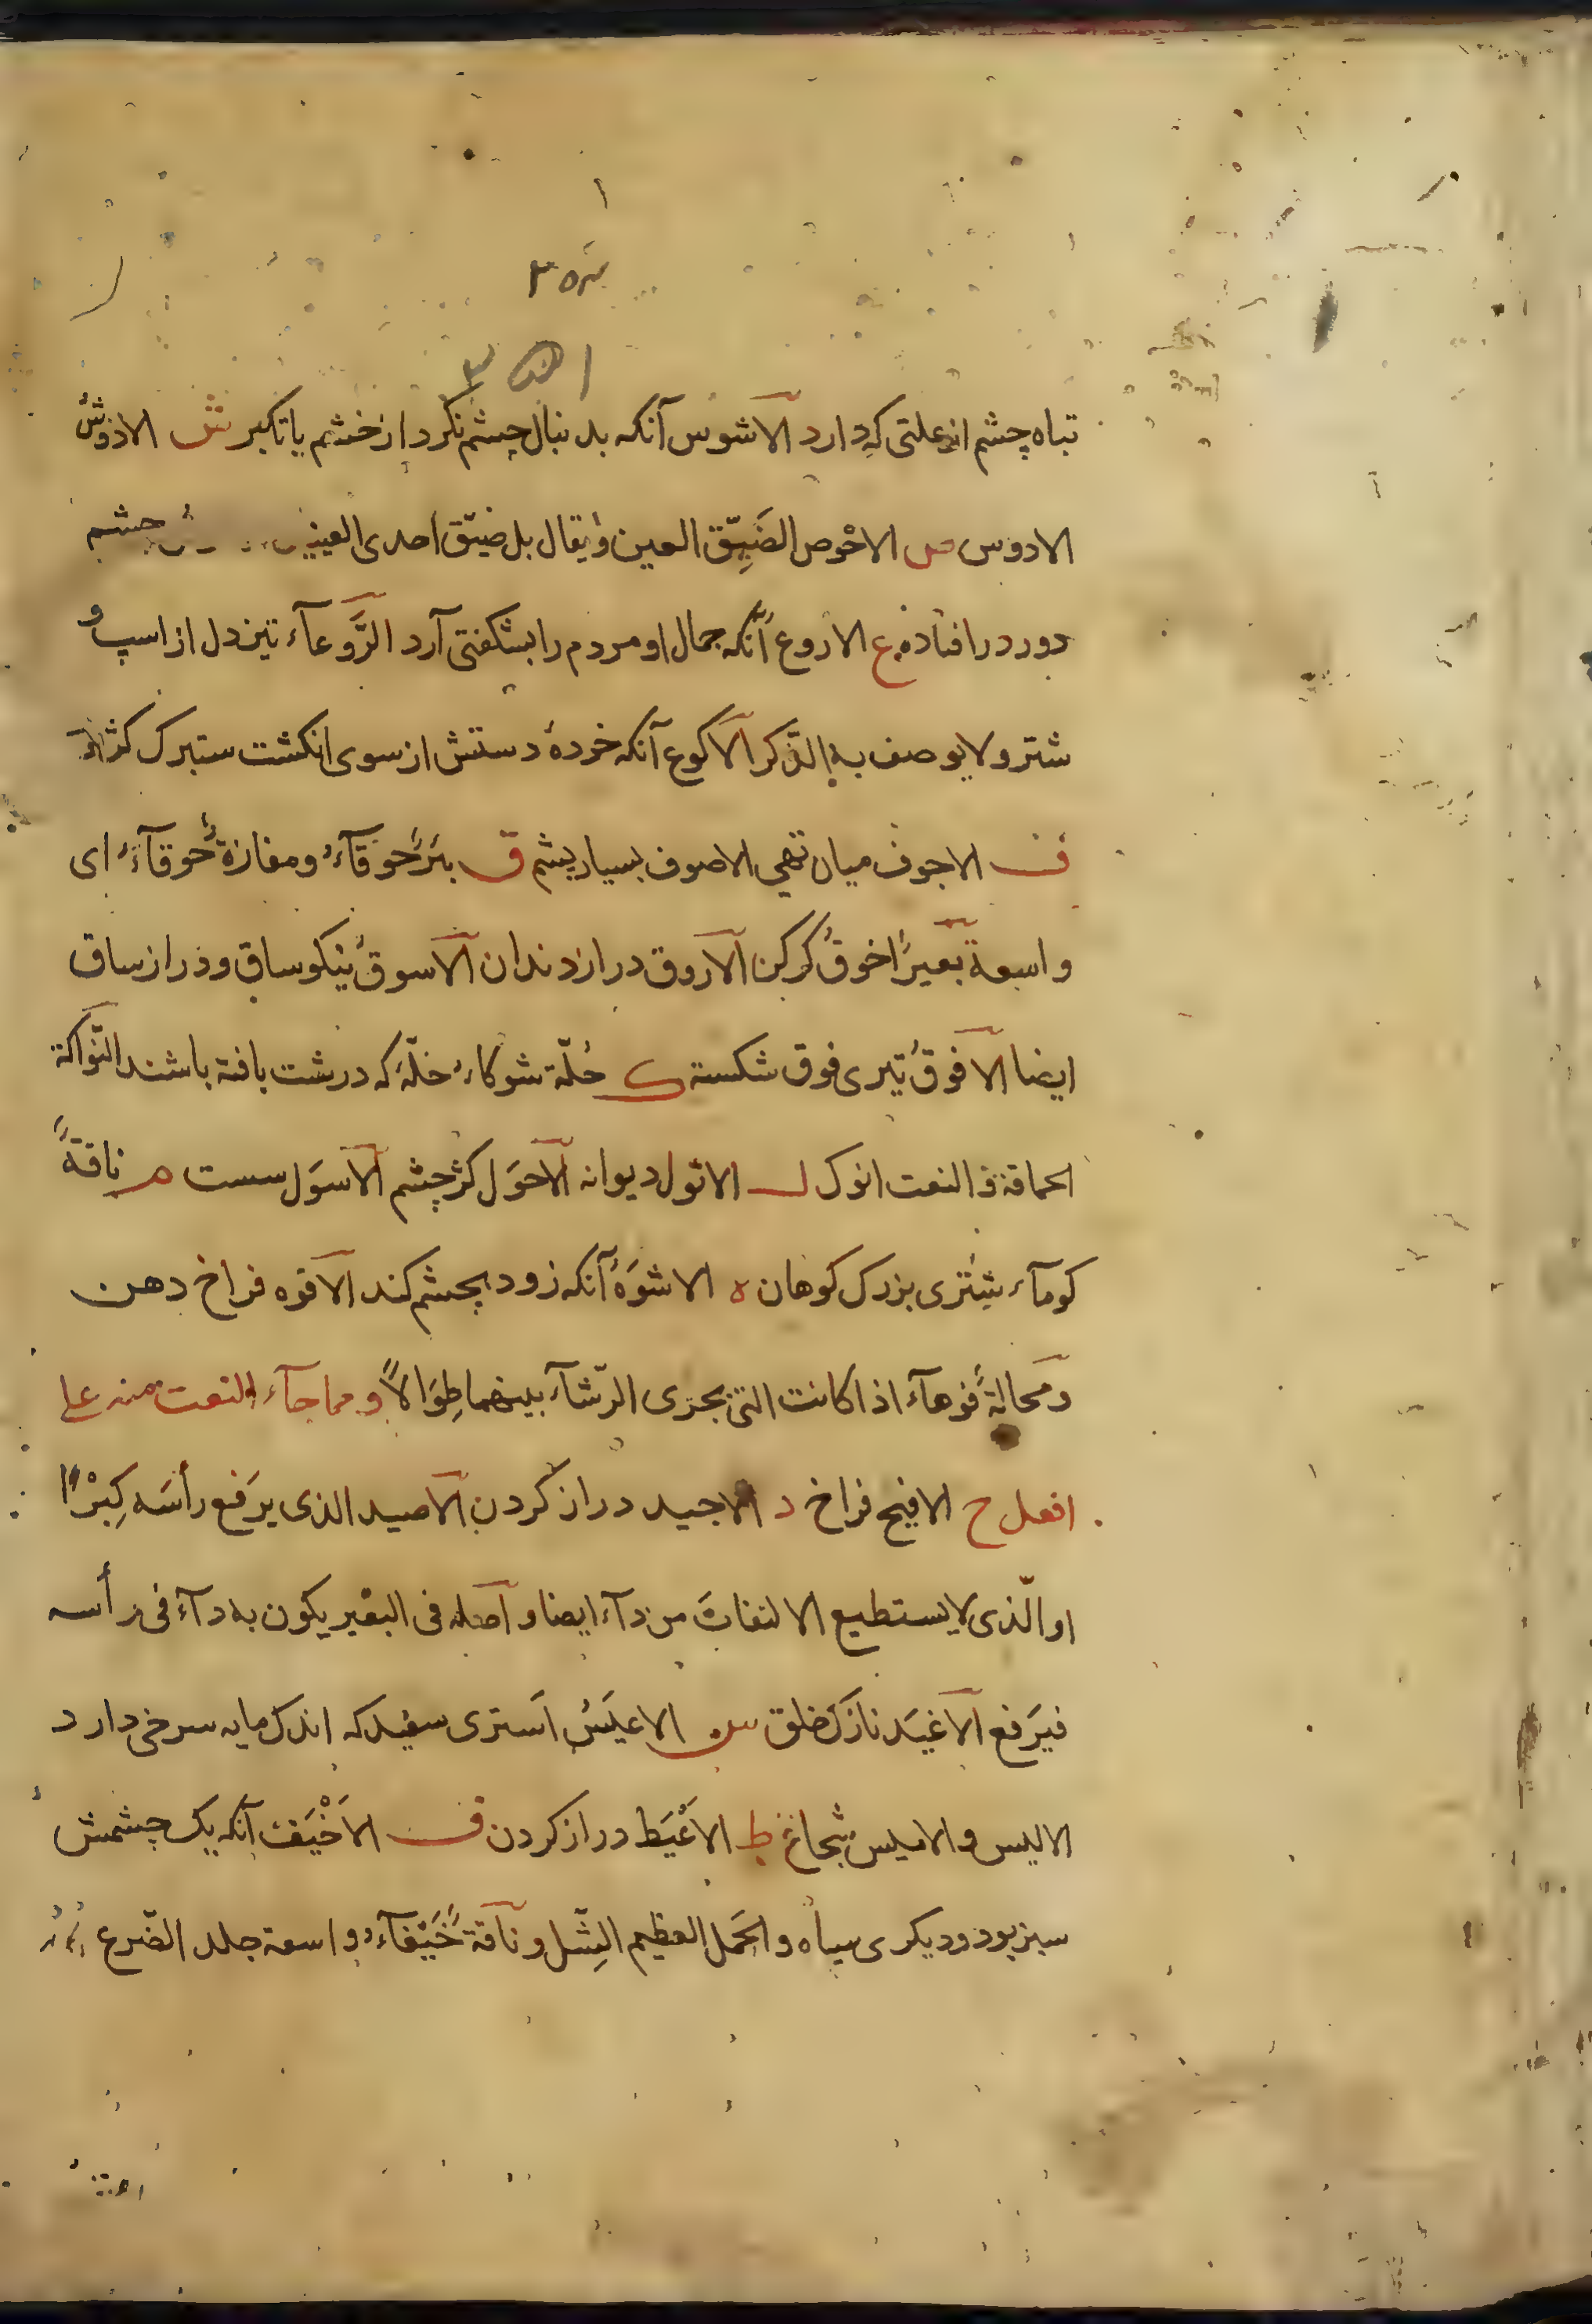 تباه چشم از علتی که دارد الاشوس آنکه بدنبال چشم نکرد از خشم یا تکبر ش الادوش
الادوس ص الاخوص الضَیِّق العین ویقال بل ضیّق احدی العین چشم
دور در افتاده ع الاروع آنکه جمال او مردم را بشکفتی آرد الرَّوعآء تیزدل از اسپ و
شتر ولا یوصف به الذّکر الاکوع آنکه خردۀ دستش از سوی انکشت ستبرک
ف الاجوف میان تهی الاصوف بسیار پشم ق بئرٌ حوقآءُ ومفازةٌ حوقآءُ ای
واسعة بعیرٌ اخوقُ کرکن الاروق دراز دندان الاسوق نیکو ساق ودراز ساق
ایضا الافوقُ تیری فوق شکسته ک حُلّة شوکاءُ حلّهٔ که درشت بافته باشند النّواکة
الحماقة والنعت انوک ل الاثول دیوانه الاحوَل کژ چشم الاسوَل سست م ناقةٌ
کومآء شتری بزرک کوهان ه الاشوَهُ آنکه زود بچشم کند الافوه فراخ دهن
ومحالةٌ فوهآء اذا کانت التی یجری الرّشآء بینهما طِوَالاً ومما جآء النعت منه علی
افعل ح الافیح فراخ د الاجید دراز کردن الاصید الذی یرَفع رأسَه کِبْرًا
او الّذی لا یستطیع الالتفاتَ من دآء ایضا واصله فی البعیر یکون به دآء فی رأسه
فیَرفع الاغیَد نازک خلق س الاعیَسُ اَستری سفید که اندک مایه سرخی دارد
الالیس والاهلیس شجاع ط الاَعْیَط دراز کردن ف الاَخْیَف آنکه یک چشمش
سبز بود ودیکری سیاه والجَمل العظیم الثِیل وناقةٌ خَیْفآءُ واسعة جلد الضّرع